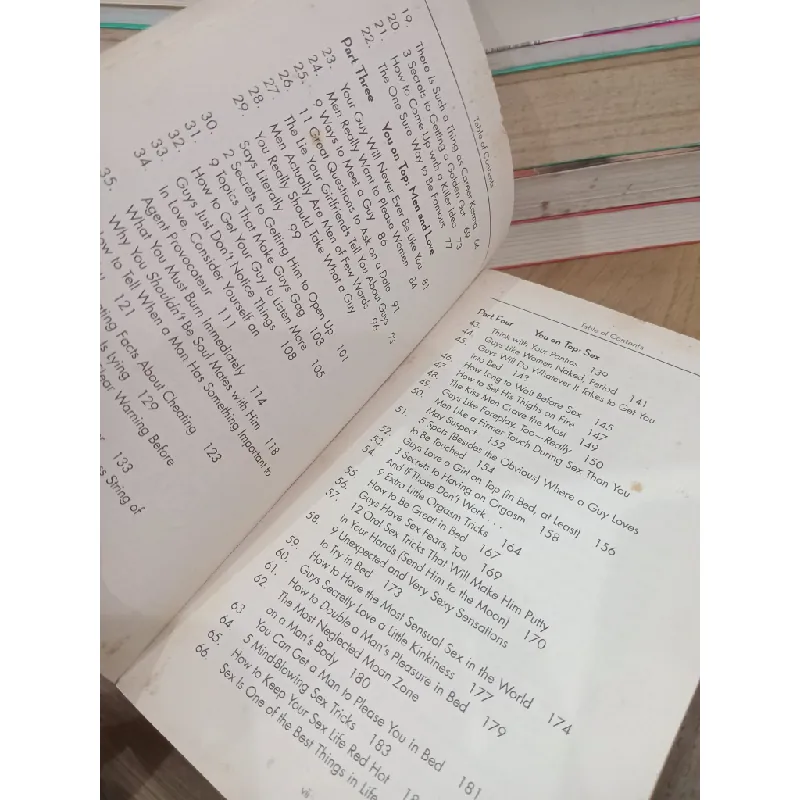 Table of Contents
19. There is Such a Thing as Career Karma 66
20. 3 Secrets to Getting a Golden Gut 69
21. How to Come Up with a Killer Idea 73
22. The One Sure Way to Be Famous 77
Part Three You on Top: Men and Love
23. Your Guy Will Never Ever Be Like You 81
24. Men Really Want to Please Women 84
25. 9 Ways to Meet a Guy 86
26. 11 Great Questions to Ask on a Date 91
27. The Lie Your Girlfriends Tell You About Guys
28. Men Actually Are Men of Few Words
29. You Really Should Take What a Guy
Says Literally 99
30. 2 Secrets to Getting Him to Open Up 101
31. 9 Topics That Make Guys Gag 103
32. How to Get Your Guy to Listen More 105
33. Guys Just Don't Notice Things 108
34. In Love, Consider Yourself an
Agent Provocateur 111
35. What You Must Burn Immediately 114
Why You Shouldn't Be Soul Mates with Him 118
How to Tell When a Man Has Something Important to
121
Facts About Cheating 123
Is Lying 129
Clear Warning Before
133
String of
Table of Contents
Part Four You on Top: Sex
43. Think with Your Panties 139
44. Guys Like Women Naked, Period 141
45. Guys Will Do Whatever It Takes to Get You
into Bed 143
46. How Long to Wait Before Sex 145
47. How to Set His Thighs on Fire 147
48. The Kiss Men Crave the Most 149
49. Guys Like Foreplay, Too—Really 150
50. Men Like a Firmer Touch During Sex Than You
May Suspect 152
51. 5 Spots (Besides the Obvious) Where a Guy Loves
to Be Touched 154
52. Guys Love a Girl on Top (in Bed, at Least) 156
53. 3 Secrets to Having an Orgasm 158
54. And If Those Don't Work . . .
5 Extra Little Orgasm Tricks 164
55. How to Be Great in Bed 167
56. Guys Have Sex Fears, Too 169
57. 12 Oral Sex Tricks That Will Make Him Putty
in Your Hands (Send Him to the Moon) 170
58. 9 Unexpected and Very Sexy Sensations
to Try in Bed 173
59. How to Have the Most Sensual Sex in the World 174
60. Guys Secretly Love a Little Kinkiness 177
61. How to Double a Man's Pleasure in Bed 179
62. The Most Neglected Moan Zone
on a Man's Body 180
63. You Can Get a Man to Please You in Bed 181
64. 5 Mind-Blowing Sex Tricks 183
65. How to Keep Your Sex Life Red Hot
66. Sex Is One of the Best Things in Life